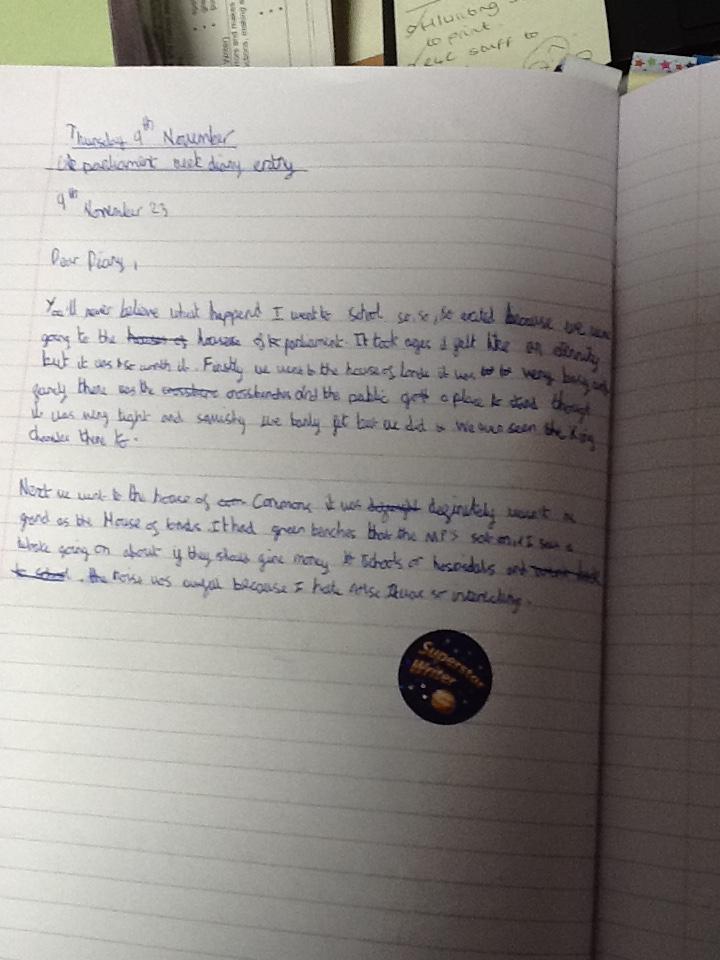 stuff to
to print.
Thursday 9th November
Uk parliament week diary entry
9th November 23
Dear Diary,
You'll never believe what happend I went to school so, so, so exited because we were
going to the houses of houses of parliament. It took ages it felt like an eternity
but it was worth it. Firstly we went to the house of Lords it was very busy and
there was the crossbenches and the public got a place to stand though
it was very tight and squishy we barly fit but we did we even seen the King
there to.
Next we went to the house of Commons it was definately wasn't as
grand as the House of lords. It had green benches that the MP's sat on. I saw a
going on about if they should give money to schools or hospitals and
to school. the noise was awful because I hate noise It was so interesting.
Superstar
Writer